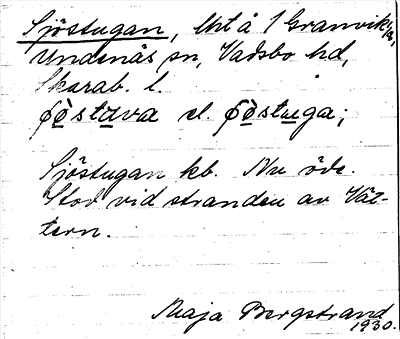 Sjöstugan, lht å 1 Granvik
Undenäs sn, Vadsbo hd,
Skarab. l.
ʃö̀stuva el. ʃö̀stuga;
Sjöstugan kb. Nu öde.
Stod vid stranden av Vät-
tern.
Maja Bergstrand
1930.